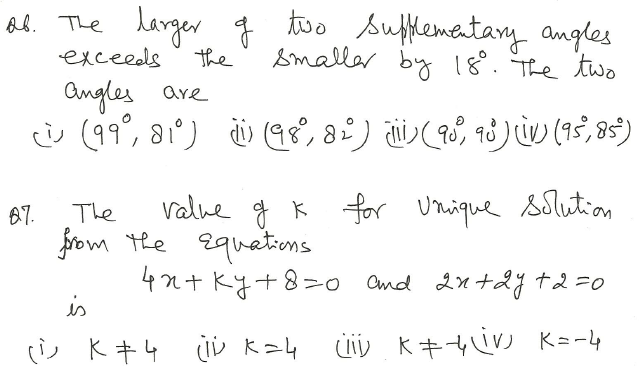 Q6. The larger of two supplementary angles
exceeds the smaller by 18°. The two
angles are
(i) (99°, 81°) (ii) (98°, 82°) (iii) (90°, 90°) (iv) (95°, 85°)
Q7. The value of K for unique solution
from the equations
4x + Ky + 8 = 0 and 2x + 2y + 2 = 0
is
(i) K ≠ 4 (ii) K = 4 (iii) K ≠ -4 (iv) K = -4